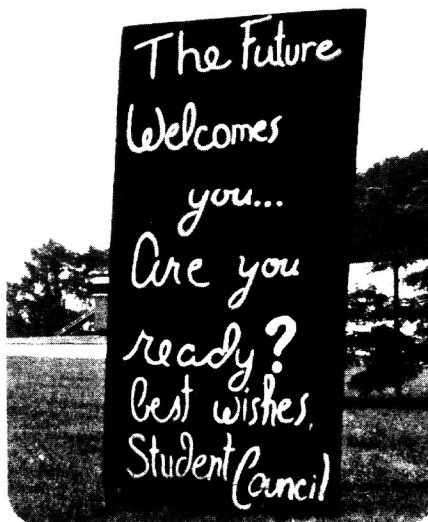 The Future
Welcomes
you...
Are you
ready?
best wishes,
Student Council